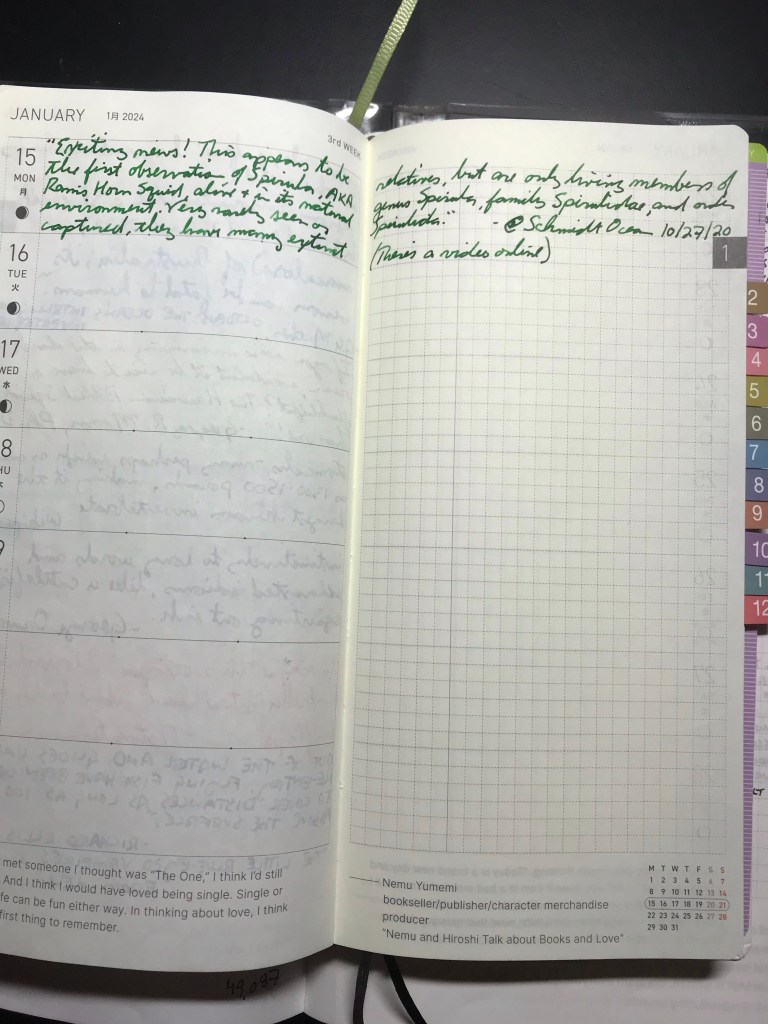 JANUARY 1月 2024
3rd WEEK
15
MON
月
"Exciting news! This appears to be
the first observation of Spirula, AKA
Rams Horn Squid, alive + in its natural
environment. Very rarely seen or
captured, they have many extinct
16
TUE
火
17
WED
水
8
HU
9
met someone I thought was "The One," I think I'd still
And I think I would have loved being single. Single or
fe can be fun either way. In thinking about love, I think
first thing to remember.
49,087
relatives, but are only living members of
genus Spirula, family Spirulidae, and order
Spirulida." - @SchmidtOcean 10/27/20
(There's a video online)
1
2
3
4
5
6
7
8
9
10
11
12
Nemu Yumemi
bookseller/publisher/character merchandise
producer
"Nemu and Hiroshi Talk about Books and Love"
M T W T F S S
1 2 3 4 5 6 7
8 9 10 11 12 13 14
15 16 17 18 19 20 21
22 23 24 25 26 27 28
29 30 31